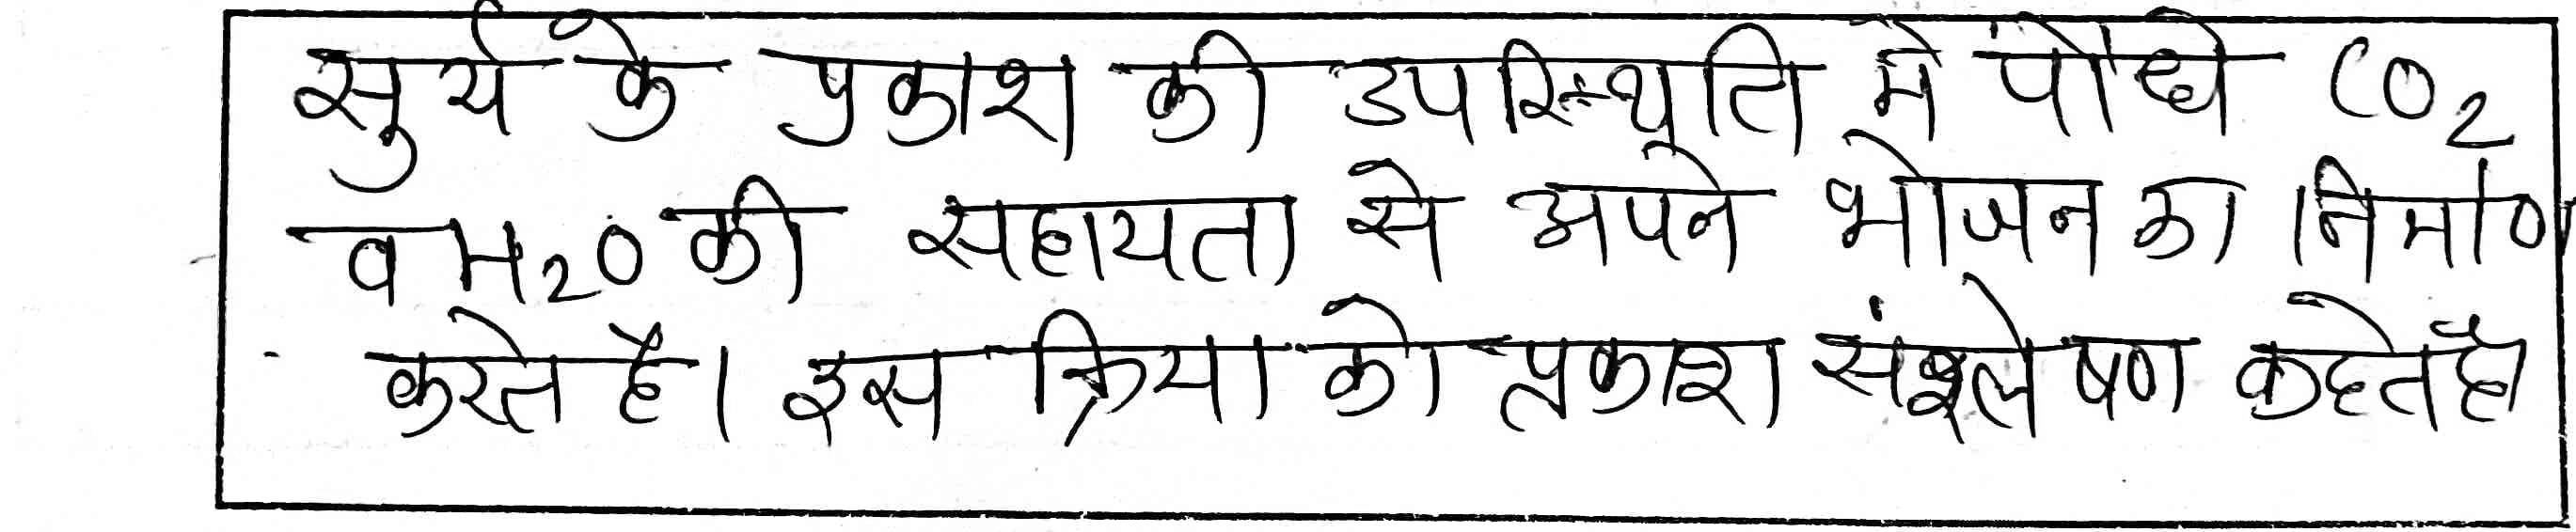 सुर्य के प्रकाश की उपस्थिति में पौधे CO₂
व H₂O की सहायता से अपने भोजन का निर्माण
करते है। इस क्रिया को प्रकाश संश्लेषण कहते है।